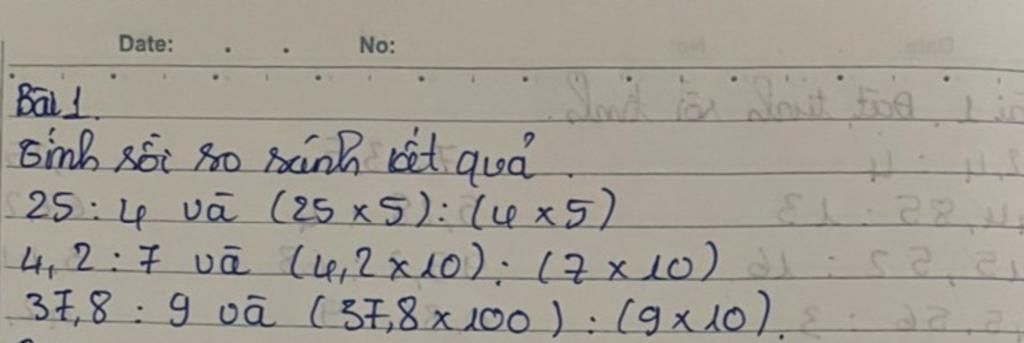 Date: . . No:
Bài 1.
Tính rồi so sánh kết quả.
25 : 4 và (25 x 5) : (4 x 5)
4,2 : 7 và (4,2 x 10) : (7 x 10)
37,8 : 9 và (37,8 x 100) : (9 x 10).